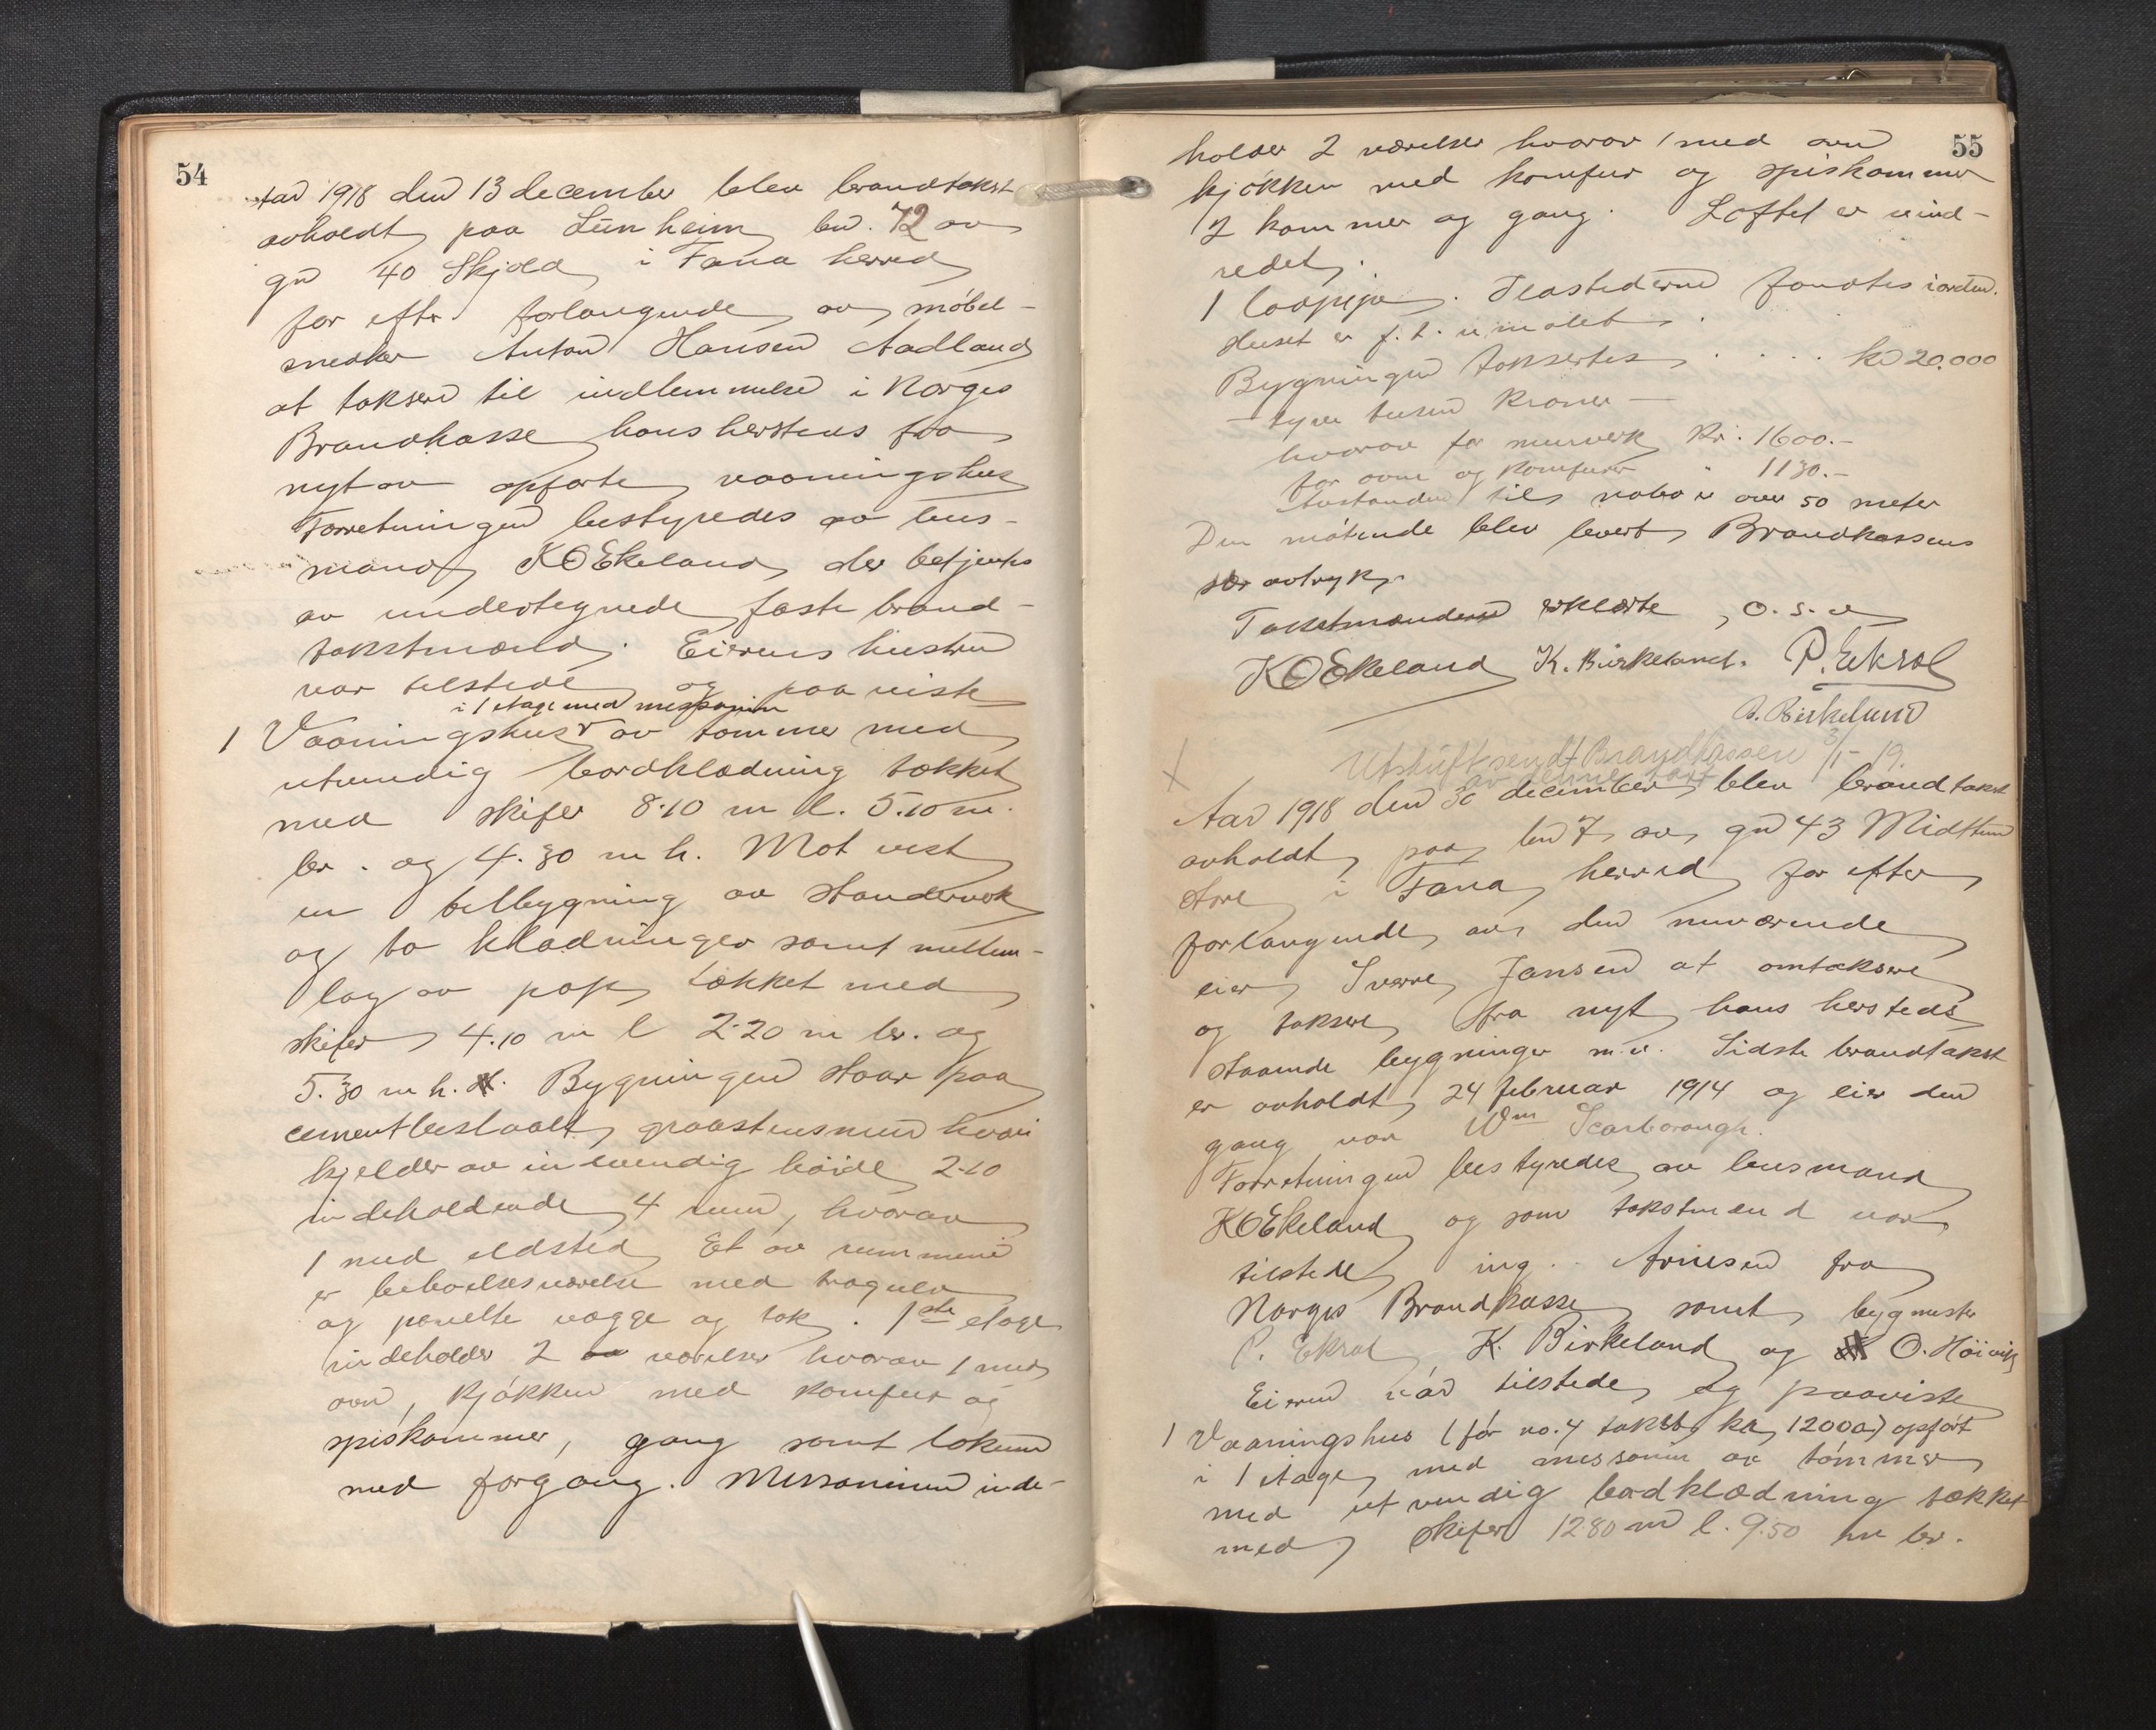 54
Aar 1918 den 13 december blev brandtakst
avholdt paa Lünheim bn. 72 av
gn 40 Skjold i Fana herred
for efter forlangende av møbel-
snedker Anton Hansen Aadland
at taksere til indlemmelse i Norges
Brandkasse hans hersteds fra
nyt av opførte vaaningshus
Forretningen bestyredes av lens-
mand K O Ekeland, der betjentes
av undertegnede faste brand-
takstmænd. Eierens hustru
var tilstede og paaviste
i 1 etage med messanin
1 Vaaningshus av tømmer med
utvendig bordklædning tækket
med skifer 8.10 m l. 5.10 m.
br. og 4.30 m h. Mot vest
en tilbygning av standerverk
og to klædninger samt mellem-
lag av pap, tækket med
skifer 4.10 m l 2.20 m br. og
5.30 m h. Bygningen staar paa
cementbeslaalt graastensmur hvori
kjelder av indvendig høide 2.10
indeholdende 4 rum, hvorav
1 med ildsted. Et av rummene
er beboelsesværelse med trægulv
og panelte vægge og tak. 1ste etage
indeholder 2 værelser hvorav 1 med
ovn, kjøkken med komfur og
spiskammer, gang samt lokum
med forgang. Messaninen inde-
55
holder 2 værelser hvorav 1 med ovn
kjøkken med komfur og spiskammer
2 kammer og gang. Loftet er uind-
redet.
1 løppipe. Ildstederne fandtes i orden.
Huset er f. t. umalet.
Bygningen taksertes . . . . kr 20.000
- tyve tusen kroner -
hvorav for murverk kr. 1600.-
for ovne og komfurer " 1130.-
Avstanden til nabo er over 50 meter
Den møtende blev levert Brandkassens
særavtryk.
Takstmændene erklærte, o. s. v
K O Ekeland K. Birkeland. P. Eksol
B. Birkeland
Utskrift sendt Brandkassen 3/1-19.
av denne takst
X
Aar 1918 den 30 december blev brandtakst
avholdt paa bn 7 av gn 43 Midttun
store i Fana herred for efter
forlangende av den nuværende
eier Sverre Jansen at omtaksere
og taksere fra nyt hans hersteds
staaende bygninger m.v. Sidste brandtakst
er avholdt 24 februar 1914 og eier den
gang var Wm Scarborough.
Forretningen bestyredes av lensmand
K O Ekeland og som takstmænd var
tilstede ing. Arnesen fra
Norges Brandkasse samt bygmester
P. Eksol K. Birkeland og O. Høivik
Eieren var tilstede og paaviste
1 Vaaningshus (før no. 4 takst kr 12000) opført
i 1 etage med messanin av tømmer
med utvendig bordklædning tækket
med skifer 12.80 m l. 9.50 m br.